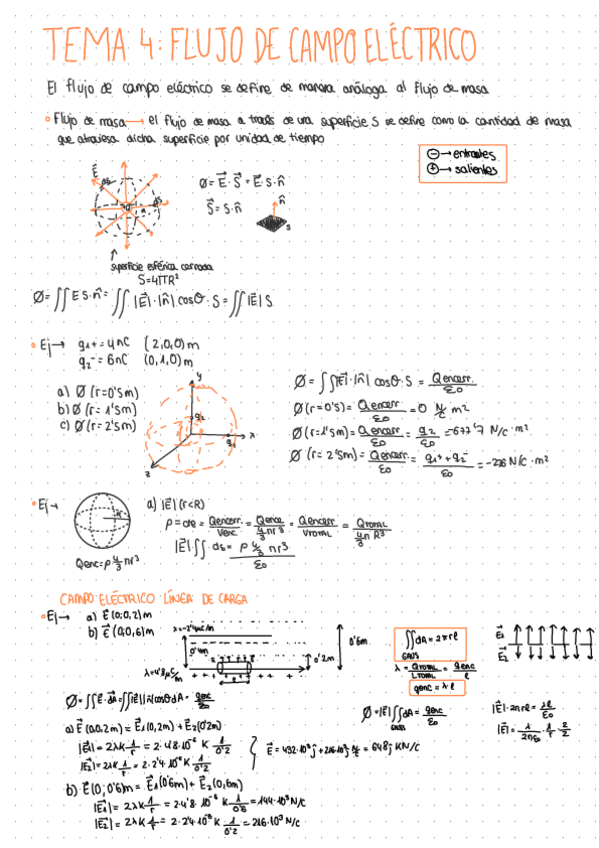 TEMA 4: FLUJO DE CAMPO ELÉCTRICO
El flujo de campo eléctrico se define de manera análoga al flujo de masa
Flujo de masa → el flujo de masa a través de una superficie S se define como la cantidad de masa
que atraviesa dicha superficie por unidad de tiempo
⊖ → entrantes
⊕ → salientes
E⃗
Ø = E⃗ · S⃗ = E⃗ · S · n̂
S⃗ = S · n̂
n̂
S
superficie esférica cerrada
S=4πR²
Ø = ∬ E S · n̂ = ∬ |E⃗| · |n̂| cosθ · S = ∬ |E⃗| S
Ej → q1+ = 4nC (2,0,0)m
q2- = 6nC (0,1,0)m
a) Ø (r=0'5m)
b) Ø (r=1'5m)
c) Ø (r=2'5m)
y
q2
x
q1
z
Ø = ∬ |E⃗| · |n̂| cosθ · S = Qencerr. / ε0
Ø (r=0'5m) = Qencerr / ε0 = 0 N/C m²
Ø (r=1'5m) = Qencerr / ε0 = q2 / ε0 = -677'7 N/C · m²
Ø (r=2'5m) = Qencerr / ε0 = q1+ + q2- / ε0 = -226 N/C · m²
Ej →
a) |E⃗| (r<R)
ρ = cte = Qencerr. / Venc. = Qence / 4/3 πr³ = Qencerr / VTOTAL = QTOTAL / 4/3 π R³
|E⃗| ∬ · ds = ρ 4/3 πr³ / ε0
Qenc = ρ 4/3 πr³
CAMPO ELÉCTRICO LÍNEA DE CARGA
Ej → a) E⃗ (0,0,2)m
b) E⃗ (0,0,6)m
λ=-2'4μC/m
0'4m
λ=4'8μC/m
0'6m
0'2m
∬ dA = 2πrl
GAUS
λ = QTOTAL / LTOTAL = qenc / l
qenc = λ · l
E⃗1
E⃗2
Ø = ∬ E⃗ · dA = ∬ |E⃗| |n̂| cosθ dA = qenc / ε0
Ø = |E⃗| ∬ dA = qenc / ε0
GAUS
|E⃗| · 2πrl = λl / ε0
|E⃗| = λ / 2πε0 · 1/r · 2/2
a) E⃗ (0,0,2m) = E⃗1 (0,2m) + E⃗2 (0'2m)
|E⃗1| = 2λK 1/r = 2 · 4'8 · 10⁻⁶ K 1/0'2
|E⃗2| = 2λK 1/r = 2 · 2'4 · 10⁻⁶ K 1/0'2
E⃗ = 432·10³ j + 216·10³ j N/C = 648 j KN/C
b) E⃗ (0,0'6m) = E⃗1 (0'6m) + E⃗2 (0,6m)
|E⃗1| = 2λK 1/r = 2 · 4'8 · 10⁻⁶ K 1/0'6 = 144·10³ N/C
|E⃗2| = 2λK 1/r = 2 · 2'4 · 10⁻⁶ K · 1/0'2 = 216·10³ N/C